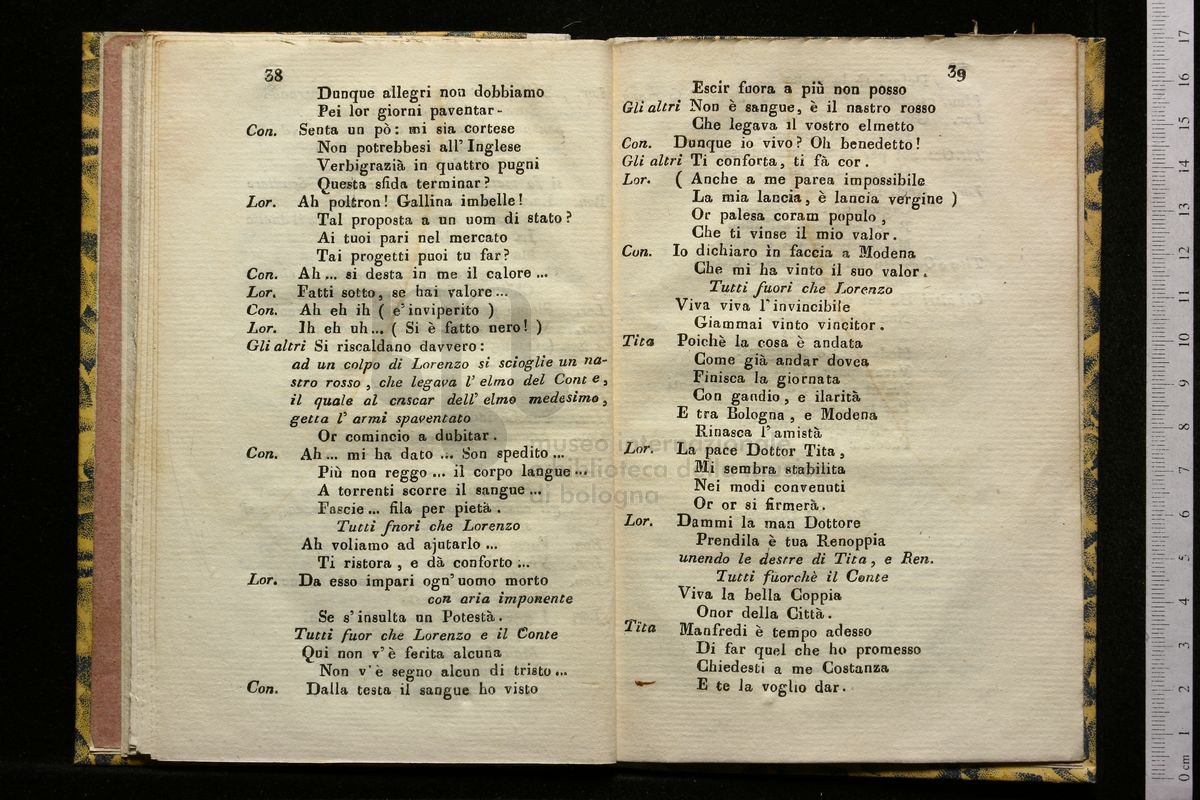 38
Dunque allegri non dobbiamo
Pei lor giorni paventar-
Con. Senta un pò: mi sia cortese
Non potrebbesi all' Inglese
Verbigrazià in quattro pugni
Questa sfida terminar?
Lor. Ah poltron! Gallina imbelle!
Tal proposta a un uom di stato?
Ai tuoi pari nel mercato
Tai progetti puoi tu far?
Con. Ah... si desta in me il calore...
Lor. Fatti sotto, se hai valore...
Con. Ah eh ih ( e' inviperito )
Lor. Ih eh uh... ( Si è fatto nero! )
Gli altri Si riscaldano davvero:
ad un colpo di Lorenzo si scioglie un na-
stro rosso, che legava l' elmo del Conte,
il quale al cnscar dell' elmo medesimo,
getta l' armi spaventato
Or comincio a dubitar.
Con. Ah... mi ha dato ... Son spedito...
Più non reggo... il corpo langue...
A torrenti scorre il sangue...
Fascie... fila per pietà.
Tutti fnori che Lorenzo
Ah voliamo ad ajutarlo...
Ti ristora, e dà conforto...
Lor. Da esso impari ogn' uomo morto
con aria imponente
Se s' insulta un Potestà.
Tutti fuor che Lorenzo e il Conte
Qui non v' è ferita alcuna
Non v' è segno alcun di tristo...
Con. Dalla testa il sangue ho visto
39
Escir fuora a più non posso
Gli altri Non è sangue, è il nastro rosso
Che legava il vostro elmetto
Con. Dunque io vivo? Oh benedetto!
Gli altri Ti conforta, ti fà cor.
Lor. ( Anche a me parea impossibile
La mia lancia, è lancia vergine )
Or palesa coram populo,
Che ti vinse il mio valor.
Con. Io dichiaro in faccia a Modena
Che mi ha vinto il suo valor.
Tutti fuori che Lorenzo
Viva viva l'invincibile
Giammai vinto vincitor.
Tita Poichè la cosa è andata
Come già andar dovea
Finisca la giornata
Con gaudio, e ilarità
E tra Bologna, e Modena
Rinasca l' amistà
Lor. La pace Dottor Tita,
Mi sembra stabilita
Nei modi convenuti
Or or si firmerà.
Lor. Dammi la man Dottore
Prendila è tua Renoppia
unendo le destre di Tita, e Ren.
Tutti fuorchè il Conte
Viva la bella Coppia
Onor della Città.
Tita Manfredi è tempo adesso
Di far quel che ho promesso
Chiedesti a me Costanza
E te la voglio dar.
museo internazionale
biblioteca della
di bologna
0 cm 1 2 3 4 5 6 7 8 9 10 11 12 13 14 15 16 17